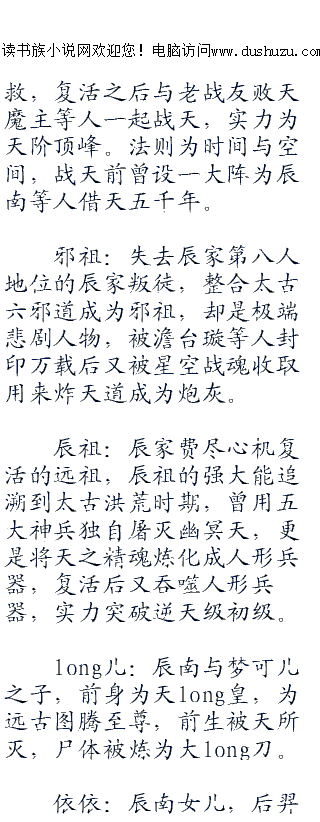 读书族小说网欢迎您！电脑访问www.dushuzu.com
救，复活之后与老战友败天
魔主等人一起战天，实力为
天阶顶峰。法则为时间与空
间，战天前曾设一大阵为辰
南等人借天五千年。
邪祖：失去辰家第八人
地位的辰家叛徒，整合太古
六邪道成为邪祖，却是极端
悲剧人物，被澹台璇等人封
印万载后又被星空战魂收取
用来炸天道成为炮灰。
辰祖：辰家费尽心机复
活的远祖，辰祖的强大能追
溯到太古洪荒时期，曾用五
大神兵独自屠灭幽冥天，更
是将天之精魂炼化成人形兵
器，复活后又吞噬人形兵
器，实力突破逆天级初级。
long儿：辰南与梦可儿
之子，前身为天long皇，为
远古图腾至尊，前生被天所
灭，尸体被炼为大long刀。
依依：辰南女儿，后羿